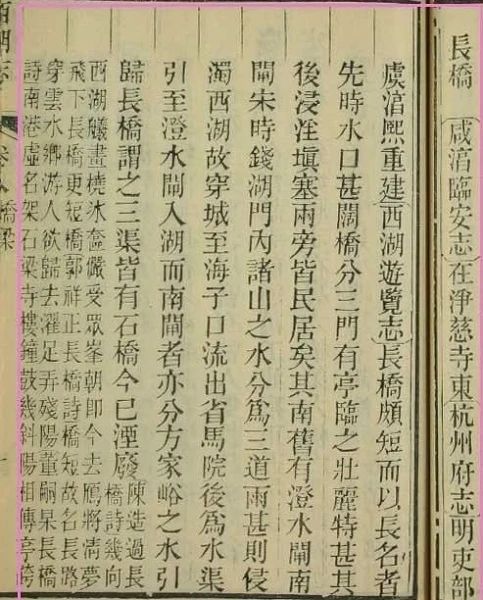 長橋 咸湻臨安志在淨慈寺東杭州府志明吏部
虞湻熙重建西湖遊覽志長橋頗短而以長名者
先時水口甚闊橋分三門有亭臨之壯麗特甚其
後浸淫塡塞兩旁皆民居矣其南舊有澄水閘南
閘宋時錢湖門內諸山之水分爲三道雨甚則侵
濁西湖故穿城至海子口流出省馬院後爲水渠
引至澄水閘入湖而南閘者亦分方家峪之水引
歸長橋謂之三渠皆有石橋今已湮廢
陳造過長
橋詩幾向
西湖艤畫橈冰奩儼受眾峯朝卽今去雁將淸夢
飛下長橋更短橋郭祥正長橋詩橋短故名長路
穿雲水鄉游人欲歸去濯足弄殘陽董嗣杲長橋
詩南港虛名架石梁寺樓鐘鼓幾斜陽相傳亭跨
西湖志
卷八 橋梁